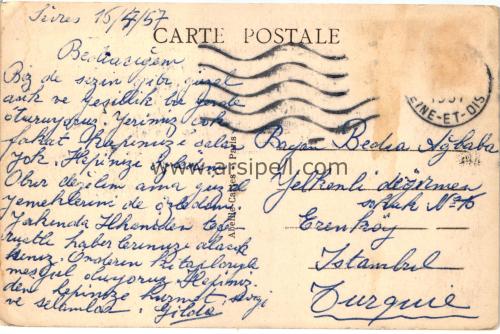 Sèvres 15/4/57
CARTE POSTALE
Bediacığım
Biz de sizin gibi güzel
açık ve yeşillik bir yerde
oturuyoruz. Yerimiz çok
fakat hepinize
yok. Hepinize
Obur değilim ama güzel
yemeklerini de özledim.
Yakında İlhandan
haberlerinizi alacak
siniz. Önderin kitaplarıyla
meşgul oluyoruz. Hepimiz
den hepinize hürmet sevgi
ve selamlar. Gilda
1957
SEINE-ET-OISE
Bayan Bedia Ağbaba
Yelkenli değirmen
sokak No 16
Erenköy
Istanbul
Turquie
Cartes Paris
www.arsipell.com